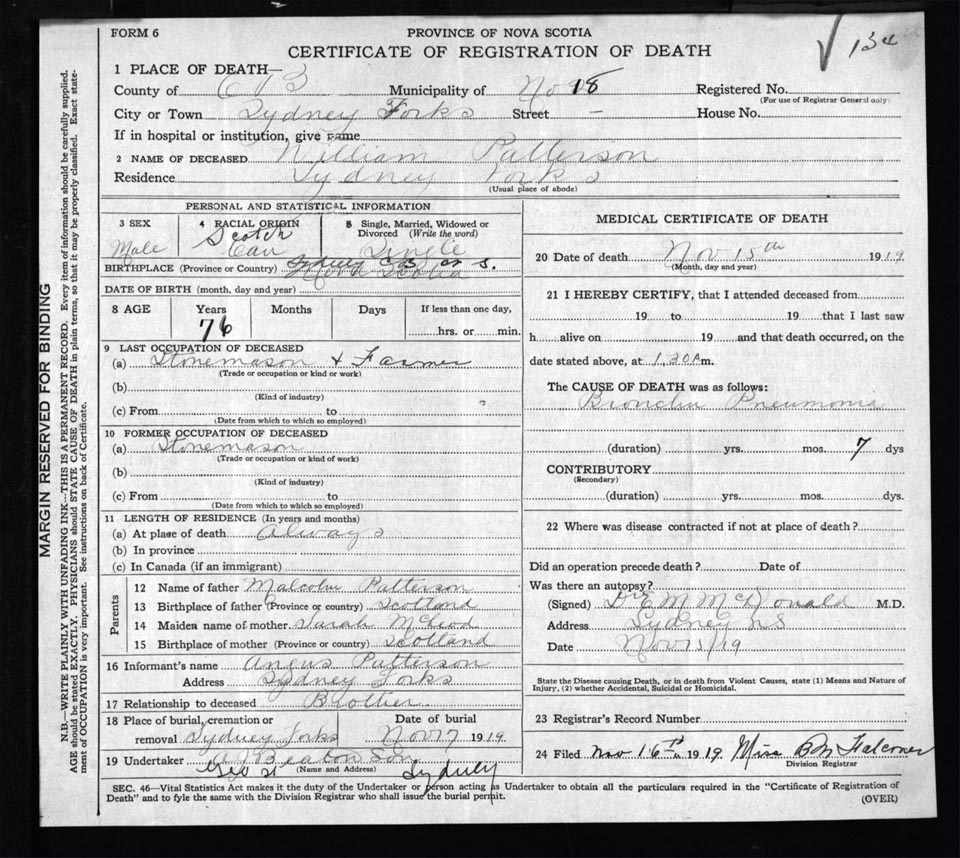 FORM 6
PROVINCE OF NOVA SCOTIA
134
CERTIFICATE OF REGISTRATION OF DEATH
1 PLACE OF DEATH—
County of C B Municipality of No 18 Registered No.
(For use of Registrar General only)
City or Town Sydney Forks Street – House No.
If in hospital or institution, give name
2 NAME OF DECEASED William Patterson
Residence Sydney Forks
(Usual place of abode)
PERSONAL AND STATISTICAL INFORMATION
3 SEX
Male
4 RACIAL ORIGIN
Scotch
Can
5 Single, Married, Widowed or
Divorced (Write the word)
Single
BIRTHPLACE (Province or Country) Sydney C B N S.
Nova Scotia
DATE OF BIRTH (month, day and year)
8 AGE Years Months Days If less than one day,
76 hrs. or min.
9 LAST OCCUPATION OF DECEASED
(a) Stonemason & Farmer
(Trade or occupation or kind or work)
(b)
(Kind of industry)
(c) From to
(Date from which to which so employed)
10 FORMER OCCUPATION OF DECEASED
(a) Stonemason
(Trade or occupation or kind of work)
(b)
(Kind of industry)
(c) From to
(Date from which to which so employed)
11 LENGTH OF RESIDENCE (In years and months)
(a) At plase of death Always
(b) In province
(c) In Canada (if an immigrant)
Parents
12 Name of father Malcolm Patterson
13 Birthplace of father (Province or country) Scotland
14 Maiden name of mother Sarah McLeod
15 Birthplace of mother (Province or country) Scotland
16 Informant's name Angus Patterson
Address Sydney Forks
17 Relationship to deceased Brother
18 Place of burial, cremation or
removal Sydney Forks
Date of burial
Nov 17 1919
19 Undertaker A J Beaton Son
(Name and Address)
Geo St Sydney
MEDICAL CERTIFICATE OF DEATH
20 Date of death Nov 15th 1919
(Month, day and year)
21 I HEREBY CERTIFY, that I attended deceased from
19 to 19 that I last saw
h alive on 19 and that death occurred, on the
date stated above, at 1.30 A m.
The CAUSE OF DEATH was as follows:
Broncho Pneumonia
(duration) yrs. mos. 7 dys
CONTRIBUTORY
(Secondary)
(duration) yrs. mos. dys.
22 Where was disease contracted if not at place of death?
Did an operation precede death? Date of
Was there an autopsy?
(Signed) Dr E M McDonald M.D.
Address Sydney N S
Date Nov 15/19
State the Disease causing Death, or in death from Violent Causes, state (1) Means and Nature of
Injury, (2) whether Accidental, Suicidal or Homicidal.
23 Registrar's Record Number
24 Filed Nov 16th 1919 Miss B M Falconer
Division Registrar
SEC. 46—Vital Statistics Act makes it the duty of the Undertaker or person acting as Undertaker to obtain all the particulars required in the "Certificate of Registration of
Death" and to fyle the same with the Division Registrar who shall issue the burial permit.
(OVER)
MARGIN RESERVED FOR BINDING
N.B.—WRITE PLAINLY WITH UNFADING INK—THIS IS A PERMANENT RECORD. Every item of information should be carefully supplied.
AGE should be stated EXACTLY. PHYSICIANS should STATE CAUSE OF DEATH in plain terms, so that it may be properly classified. Exact state-
ment of OCCUPATION is very important. See instructions on back of Certificate.